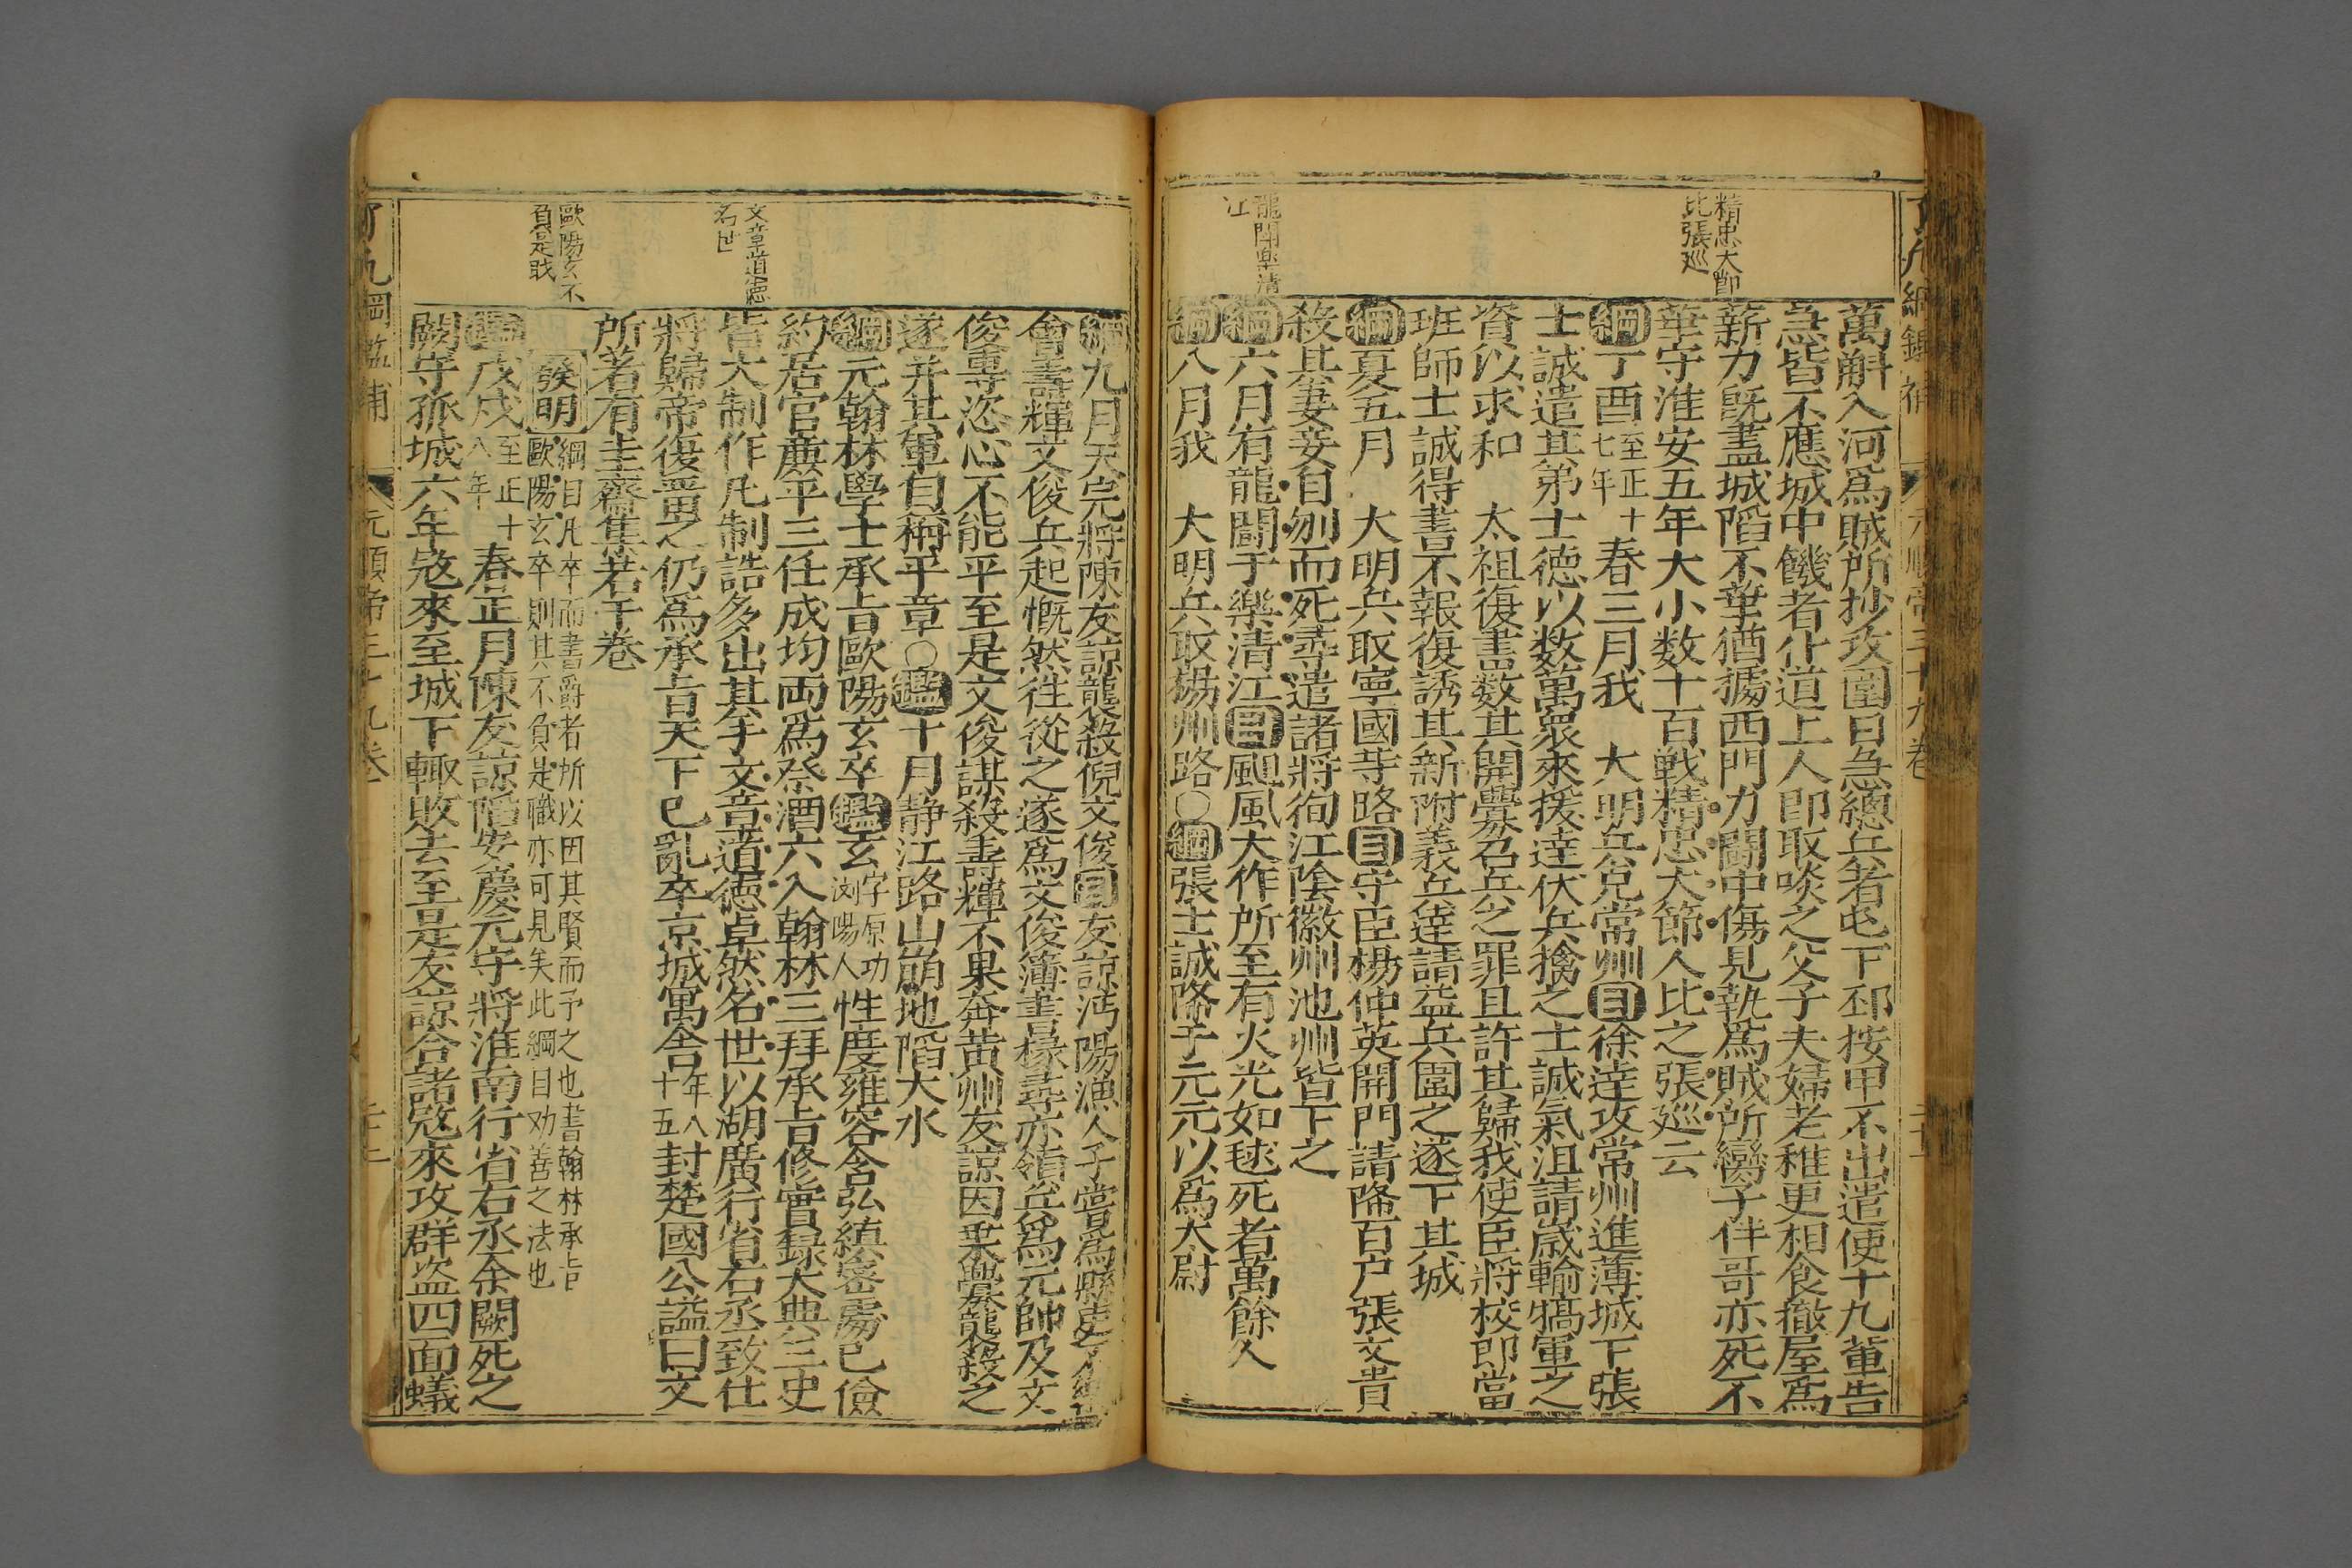 精忠大節
比張巡
萬斛入河爲賊所抄攻圍日急總兵者屯下邳按甲不出遣使十九軰告
急皆不應城中饑者仆道上人即取啖之父子夫婦老稚更相食撤屋爲
薪力既盡城陷不華猶據西門力鬬中傷見執爲賊所臠子伴哥亦死不
華守淮安五年大小数十百戦精忠大節人比之張廵云
綱丁酉至正十七年春三月我 大明兵克常州目徐逹攻常州進薄城下張
士誠遣其弟士德以数萬衆來援逹伏兵擒之士誠氣沮請嵗輸犒軍之
資以求和 太祖復書数其開釁召兵之罪且許其歸我使臣將校即當
班師士誠得書不報復誘其新附義兵逹請益兵圍之遂下其城
綱夏五月 大明兵取寧國等路目守臣楊仲英開門請降百户張文貴
殺其妻妾自刎而死尋遣諸將徇江陰徽州池州皆下之
龍鬬樂清
江
綱六月有龍鬬于樂清江目颶風大作所至有火光如毬死者萬餘人
綱八月我 大明兵取楊州路○綱張士誠降于元元以爲大尉
綱九月天完將陳友諒襲殺倪文俊目友諒沔陽漁人子嘗爲縣吏不樂
會壽輝文俊兵起慨然往從之遂爲文俊簿書掾尋亦領兵爲元帥及文
俊專恣心不能平至是文俊謀殺壽輝不果奔黄州友諒因乗釁襲殺之
遂并其軍自稱平章○鑑十月静江路山崩地陷大水
綱元翰林學士承㫖歐陽玄卒鑑玄字原功浏陽人性度雍容含弘縝密處已儉
約居官廉平三任成均兩爲祭酒六入翰林三拜承㫖修實録大典三史
文章道德
名世
皆大制作凡制誥多出其手文章道德卓然名世以湖廣行省右丞致仕
將歸帝復留之仍爲承㫖天下已亂卒京城寓舎年八十五封楚國公謚曰文
所著有圭齋集若干卷
歐陽玄不
負是職
發明綱目凡卒而書爵者所以因其賢而予之也書翰林承㫖
歐陽玄卒則其不負是職亦可見矣此綱目劝善之法也
戊戌至正十八年春正月陳友諒陷安慶元守將淮南行省右丞余闕死之
闕守孤城六年宼來至城下輙敗去至是友諒合諸宼來攻群盗四面蟻
綱鑑補 元順帝三十九卷